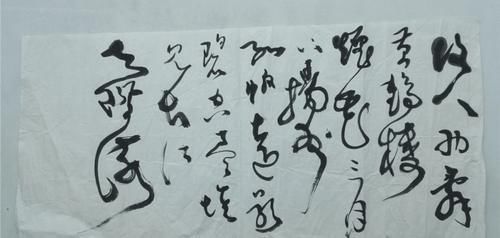 故人西辞
黄鹤楼
烟花三月
下扬州
孤帆远影
碧空尽惟
见长江
天际流